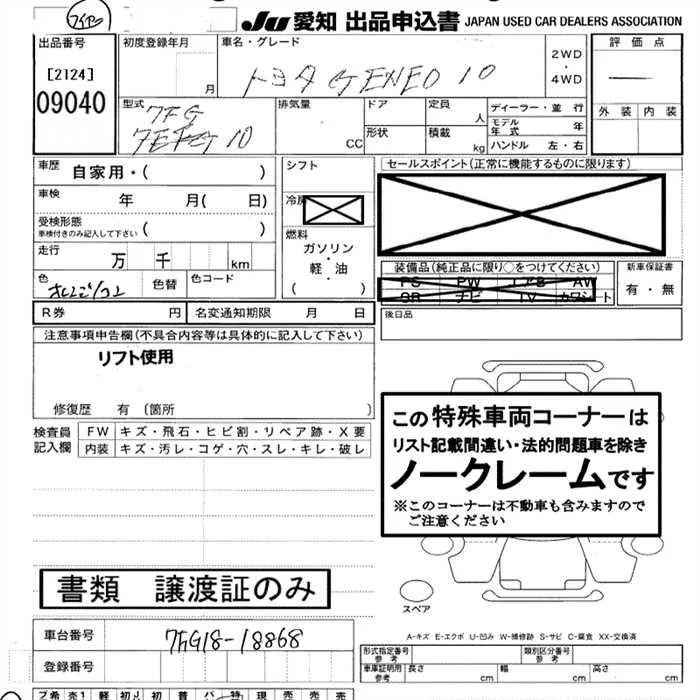 JU 愛知 出品申込書 JAPAN USED CAR DEALERS ASSOCIATION
出品番号
[2124]
09040
初度登録年月
月
車名・グレード
トヨタ GENEO 10
2WD
・
4WD
評価点
外装 内装
型式
7FG
排気量
CC
ドア
形状
定員
人
積載
kg
ディーラー・並 行
モデル年式 年
ハンドル 左・右
車歴 自家用・( )
車検 年 月( 日)
受検形態
車検付きのみ記入して下さい ( )
走行 万 千 km
色
色替
色コード
シフト
冷房
燃料
ガソリン
・
軽・油
( )
セールスポイント(正常に機能するものに限ります)
装備品(純正品に限り○をつけてください)
PS PW エアB AW
SR ナビ TV カワシート
新車保証書
有・無
R券 円 名変通知期限 月 日
後日品
注意事項申告欄(不具合内容等は具体的に記入して下さい)
リフト使用
修復歴 有 (箇所 )
検査員
記入欄
FW キズ・飛石・ヒビ割・リペア跡・X要
内装 キズ・汚レ・コゲ・穴・スレ・キレ・破レ
この特殊車両コーナーは
リスト記載間違い・法的問題車を除き
ノークレームです
※このコーナーは不動車も含みますので
ご注意ください
書類 譲渡証のみ
スペア
A-キズ E-エクボ U-凹み W-補修跡 S-サビ C-腐食 XX-交換済
車台番号 7FG18-18868
登録番号
形式指定番号
参考
類別区分番号
参考
車庫証明用
参考
長さ cm 幅 cm 高さ cm